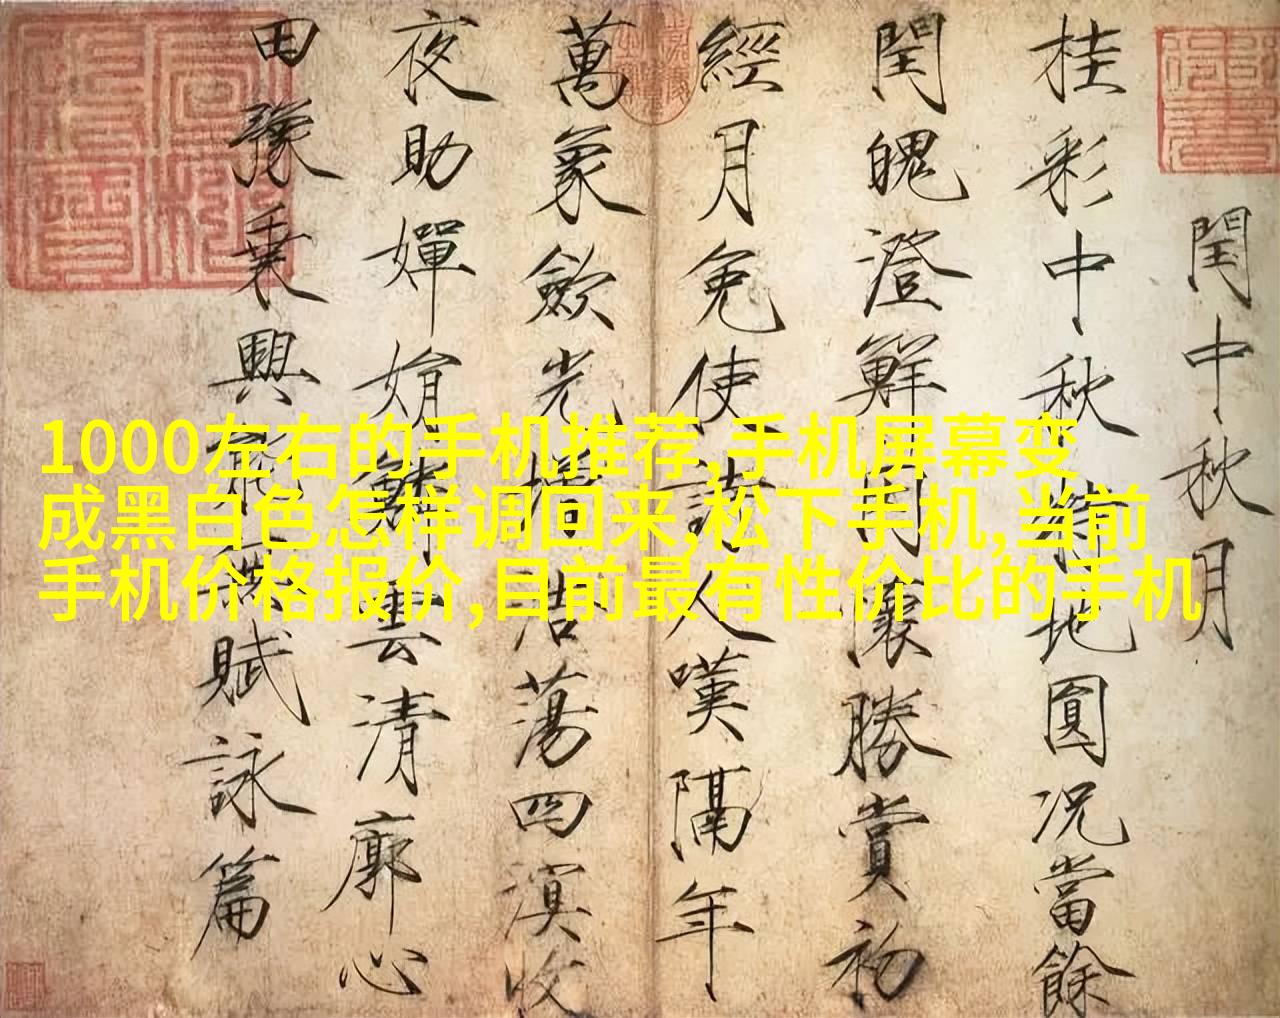 閏中秋月
桂彩中秋特地圓況當餘
閏魄澄鮮因懷勝賞初
經月免使詩人嘆隔年
萬象歛光增浩蕩四溟收
夜助嬋娟鱗雲清廓心
田豫乗興能無賦詠篇
1000左右的手机推荐,手机屏幕变
成黑白色怎样调回来,松下手机,当前
手机价格报价,目前最有性价比的手机